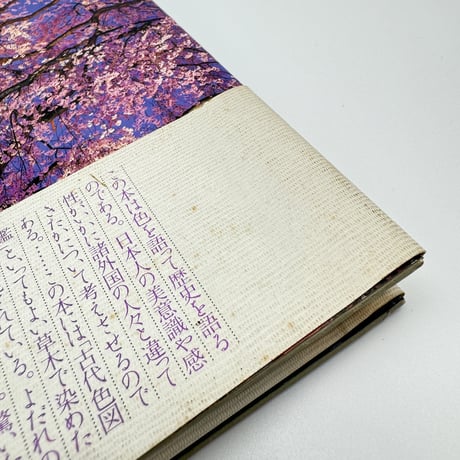 この本は色を語って歴史を語る
のである。日本人の美意識や感
性がいかに諸外国の人々と違って
きたかについて考えさせるので
ある。……この本は「古代色図
鑑」といってもよい草木で染めた
されている。よだれの